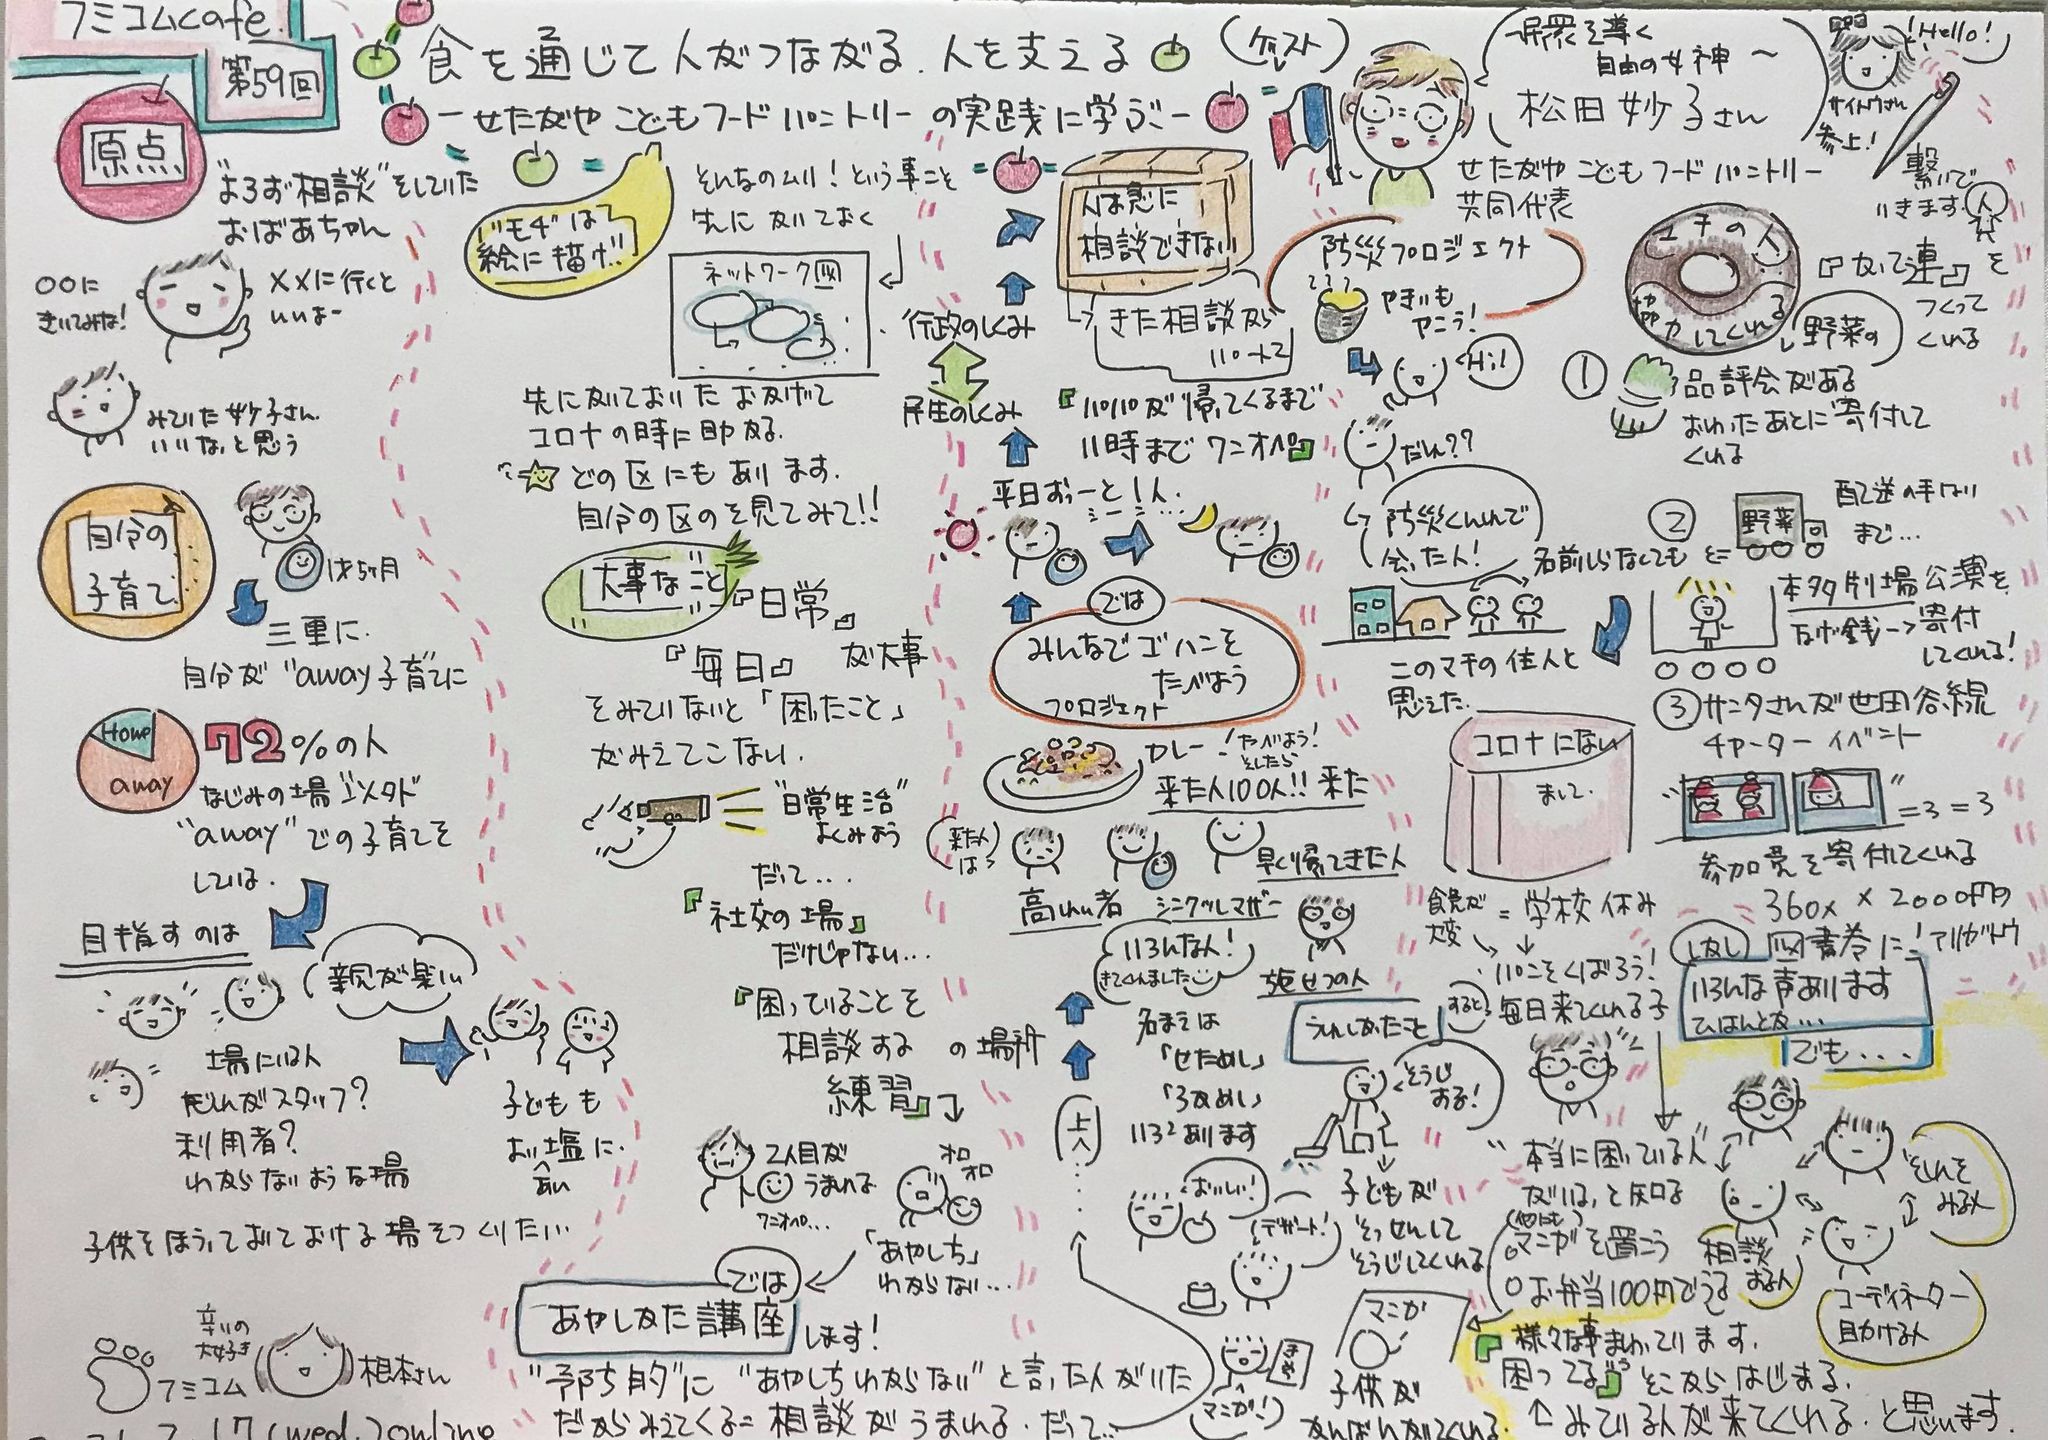 フミコムcafe
第59回
食を通じて人がつながる.人を支える
ーせたがやこどもフードパントリーの実践に学ぶー
ゲスト
民衆を導く
自由の女神～
松田妙子さん
せたがやこどもフードパントリー
共同代表
Hello!
サイトウさん
参上!
繋いで
いきます
人
原点
"よろず相談"をしていた
おばあちゃん
○○に
きいてみな!
××に行くと
いいよー
みていた妙子さん.
いいなと思う
自分の
子育て
1才5ヶ月
三重に.
自分が"away子育てに
Home
away
72%の人
なじみの場以外
"away"での子育てを
している.
目指すのは
親が楽しい
場には人
だれがスタッフ?
利用者?
わからないような場
子どもも
お塩に.
あい
子供をほうっておいておける場をつくりたい…
辛いの
大好き
フミコム
相本さん
7.17(wed.)online
"モチ"は
絵に描け!!
そんなのムリ!という事こそ
先に書いておく
ネットワーク図
先に書いておいたおかげで
コロナの時に助かる.
どの区にもあります.
自分の区のを見てみて!!
大事なこと
『日常』
『毎日』が大事
をみていないと「困ったこと」
がみえてこない.
"日常生活"
よくみよう
だって…
『社交の場』
だけじゃない…
『困っていることを
相談するの場所
練習』
2人目が
うまれる
ワンオペ…
オロ
オロ
「あやしち」
わからない…
では
あやしかた講座
します!
"予防的"に"あやしちわからない"と言った人がいた
だからみえてくる=相談がうまれる.だって…
人は急に
相談できない
きた相談から
パートス
行政のしくみ
民生のしくみ
『パパが帰ってくるまで
11時までワンオペ』
平日おっーと1人.
シーン…
では
みんなでゴハンを
たべよう
プロジェクト
カレー!たべよう!
そしたら
来た人100人!!来た
来た人
は
早く帰ってきた人
高れい者
シングルマザー
いろんな人!
きてくれました
施せつの人
名まえは
「せためし」
「3ためし」
いろいろあります
上へ
防災プロジェクト
やきいも
やこう!
Hi!
だれ??
防災くんれんで
会った人!
名前しらなくても
このマチの住人と
思えた.
コロナになり
まして.
食覚が
大変
=学校休み
パンをくばろう!
毎日来てくれる子
すると
うれしかったこと
そうじ
ある!
子どもが
そっせんして
そうじしてくれる
おいしい!
デザート!
マンガ!
マンガ
子供が
がんばれがでてくる.
"本当に困っている人"
がいる,と知る
他にも
○マンガを置こう
○お弁当100円でうる
『様々な事まわっています.
困ってる』うそこからはじまる.
↑みている人が来てくれる.と思います.
マチの人
協力してくれる
『かて連』を
つくって
くれる
①
野菜の
品評会がある
おわったあとに寄付して
くれる
②
野菜
配送の手はい
まで…
本多劇場公演を
なげ銭→寄付
してくれる!
③サンタさんが世田谷線
チャーターイベント
=3=3
参加費を寄付してくれる
360人×2000円の
図書券に!アリガトウ
しかし
いろんな声あります
ひはんとか…
でも...
それを
みる人
相談
する人
コーディネーター
助ける人